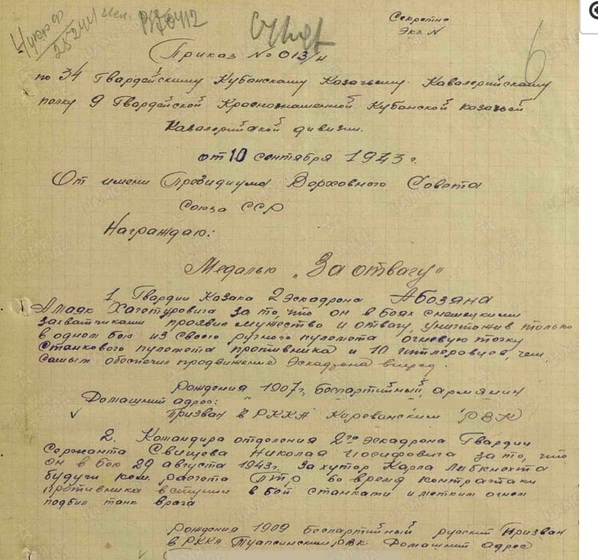 Секретно
Экз N
Приказ № 013/н
по 34 Гвардейскому Кубанскому Казачьему Кавалерийскому
полку 9 Гвардейской Краснознаменной Кубанской казачьей
Кавалерийской дивизии.
от 10 сентября 1943 г.
От имени Президиума Верховного Совета
Союза ССР
Награждаю:
Медалью „За отвагу"
1. Гвардии Казака 2 Эскадрона Абозяна
Хачетуровича за то, что он в боях с немецкими
захватчиками проявил мужество и отвагу, уничтожив только
в одном бою из своего ручного пулемота огневую точку
станкового пулемота противника и 10 гитлеровцев, чем
самым обеспечил продвижение Эскадрона вперед.
Рождения 1907г, Беспартийный, армянин
Домашний адрес:
призван в РККА Кироваиским РВК
2. Командира отделения 2го эскадрона Гвардии
Сержанта Свищева Николая Иосифовича за то, что
он в бою 29 августа 1943г. За хутор Карла Либкнехта
будучи ком. расчета ПТР во время контратаки
противника вступил в бой с танками и метким огнем
подбил танк врага
Рождения 1909 Беспартийный русский Призван
в РККА Туапсинским РВК Домашний адрес